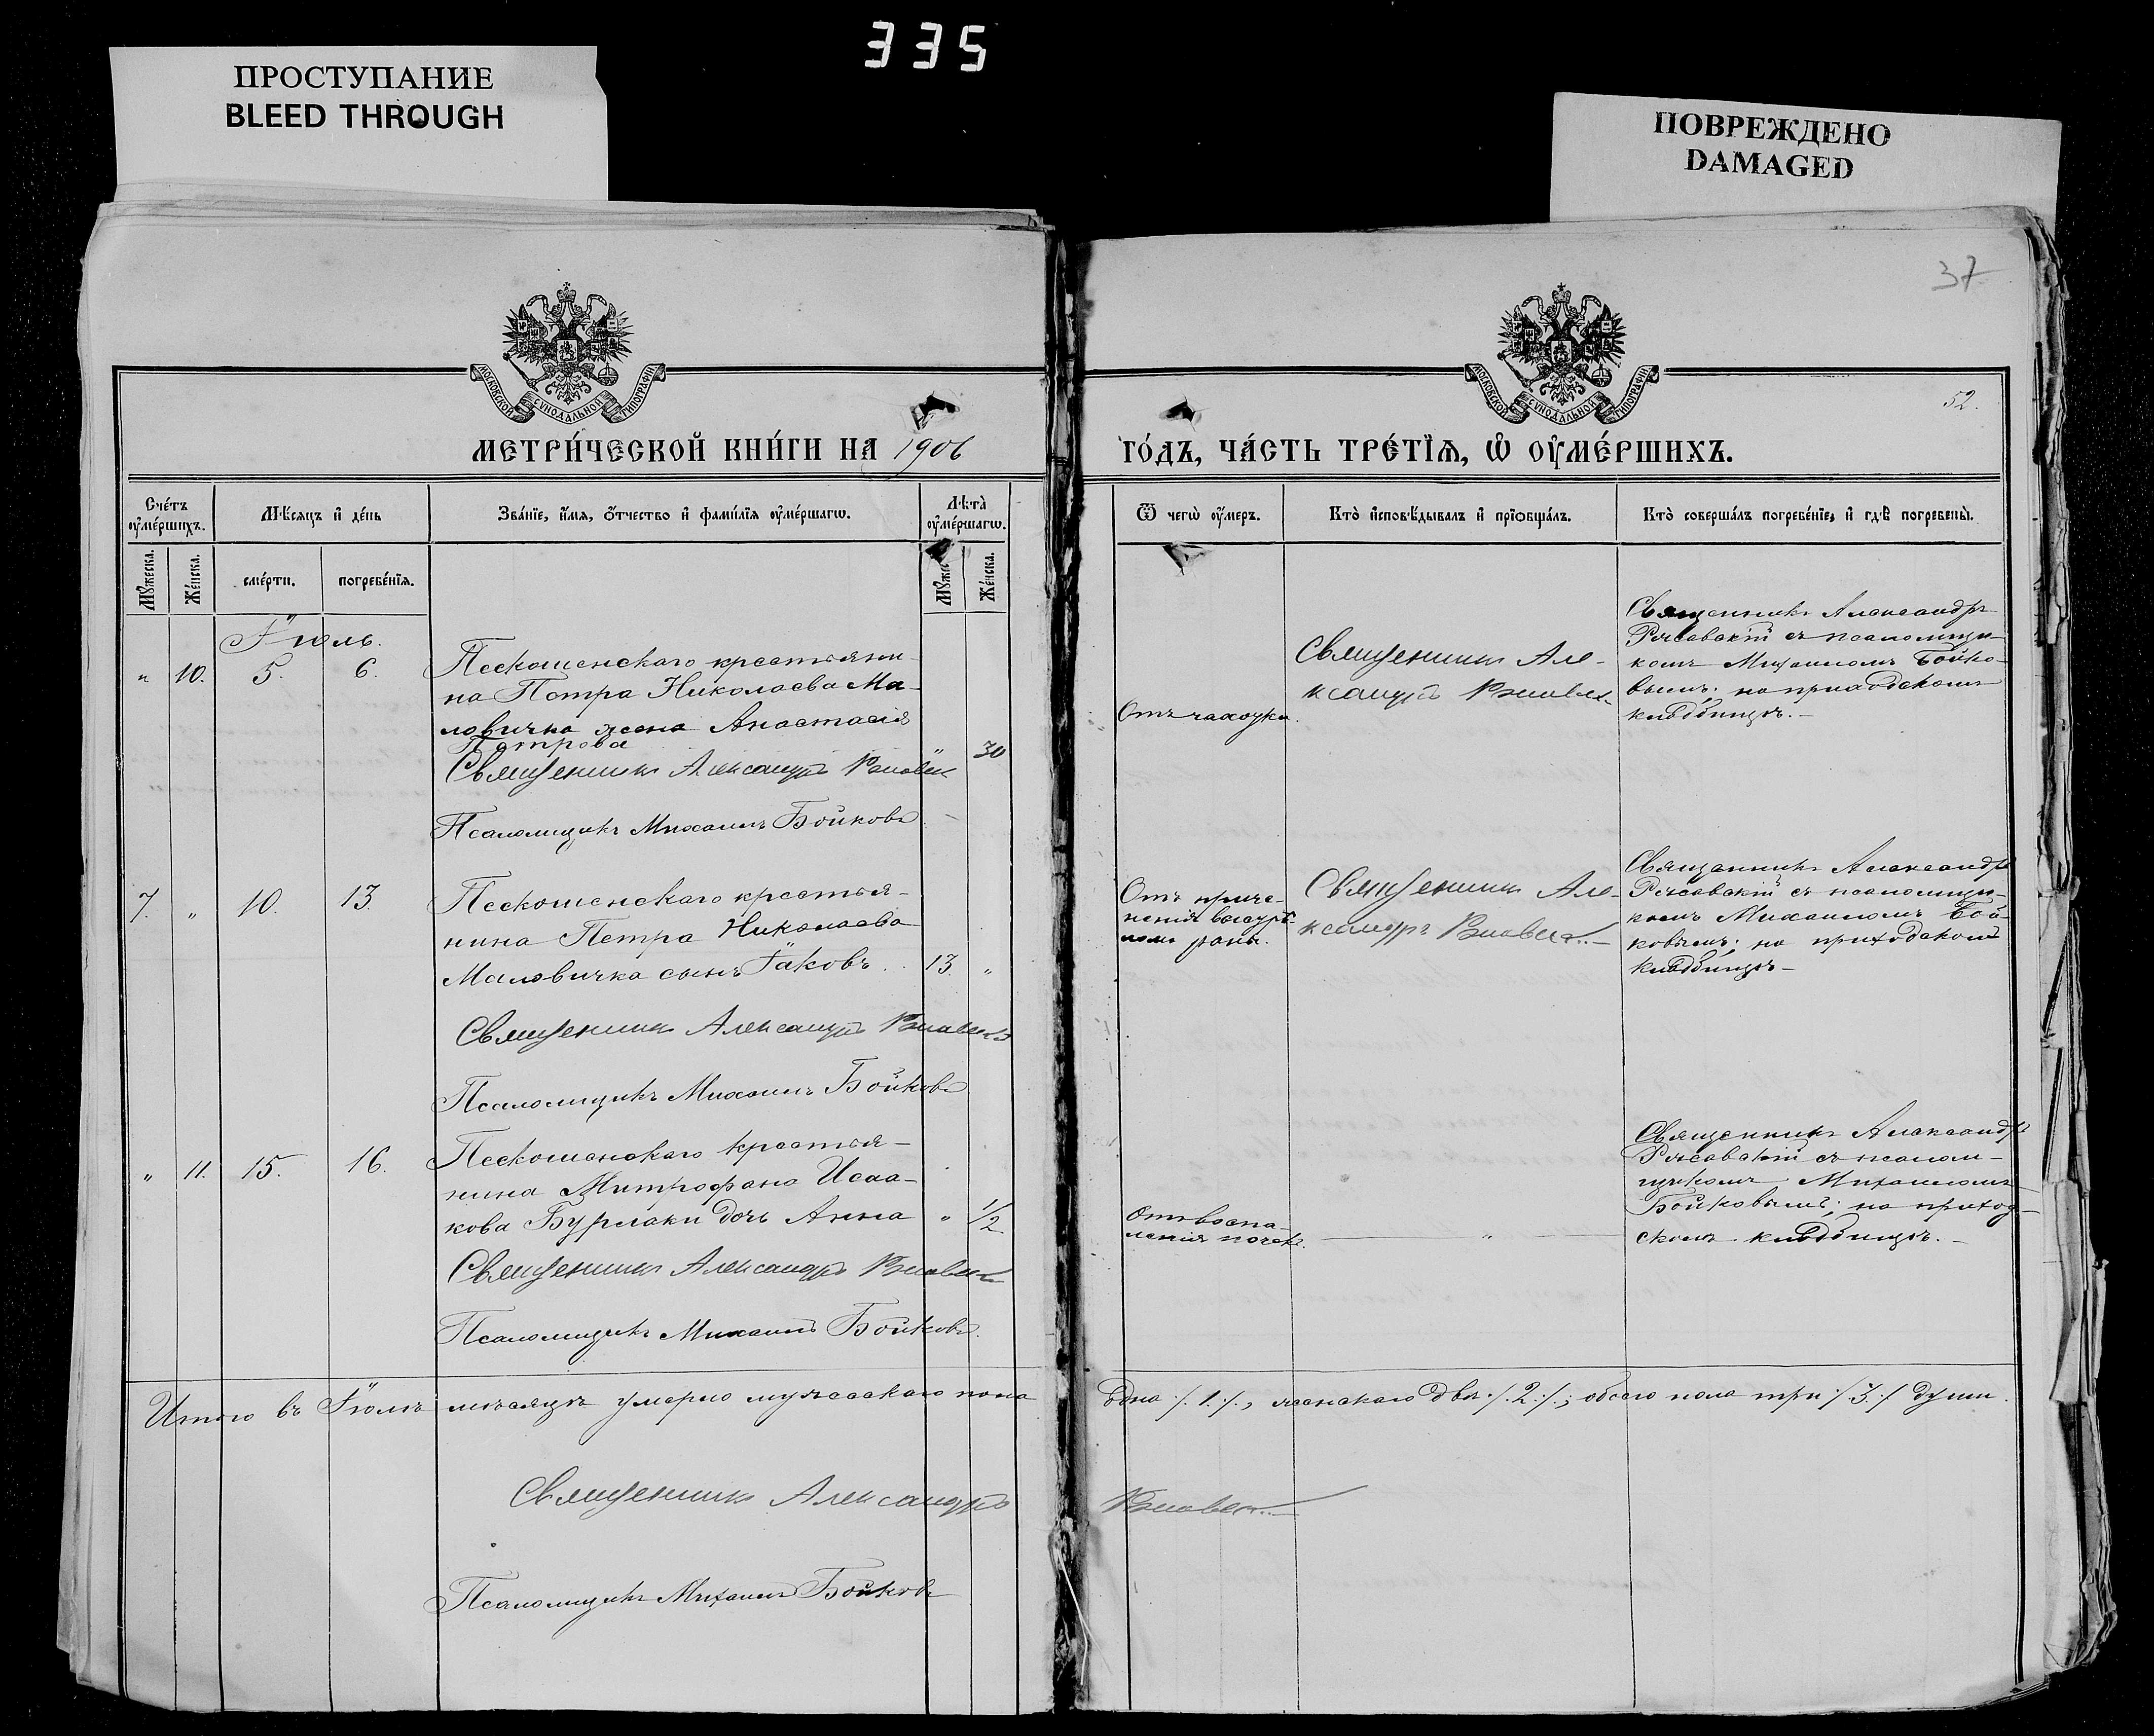 335
ПРОСТУПАНИЕ
BLEED THROUGH
ПОВРЕЖДЕНО
DAMAGED
37
МОСКОВСКОЙ СѴНОДАЛЬНОЙ ТИПОГРАФІИ
МОСКОВСКОЙ СѴНОДАЛЬНОЙ ТИПОГРАФІИ
52.
МЕТРИ́ЧЕСКОЙ КНИ́ГИ НА 1906
ГО́ДЪ, ЧА́СТЬ ТРЕ́ТІѦ, Ѡ ОУ҆МЕ́РШИХЪ.
Сче́тъ оу҆ме́ршихъ.
Мѣ́сяцъ и҆ де́нь
Зва́ніе, и҆́мя, о҆́тчество и҆ фами́лія оу҆ме́ршагѡ.
Лѣ́та оу҆ме́ршагѡ.
Ѿ чегѡ̀ оу҆́меръ.
Кто̀ и҆сповѣ́дывалъ и҆ прїѡбща́лъ.
Кто̀ соверша́лъ погребе́ніе, и҆ гдѣ̀ погребены̀.
Мꙋ́жеска.
Же́нска.
сме́рти.
погребе́нїя.
Мꙋ́же
Же́нска.
Іюль.
" 10. 5. 6.
Пескошенскаго крестьяни-
на Петра Николаева Ма-
ловичка жена Анастасія
Петрова
" 30
Священникъ Александръ
Псаломщикъ Михаилъ Бойковъ
Отъ чахотки.
Священникъ Але-
ксандръ
Священникъ Александръ
съ псаломщи-
комъ Михаиломъ Бойко-
вымъ; на приходскомъ
кладбищѣ.-
7. " 10. 13.
Пескошенскаго крестья-
нина Петра Николаева
Маловичка сынъ Іаковъ. 13. "
Священникъ Александръ
Псаломщикъ Михаилъ Бойковъ
Отъ
раны.
Священникъ Але-
ксандръ
Священникъ Александръ
съ псаломщи-
комъ Михаиломъ Бой-
ковымъ; на приходскомъ
кладбищѣ-
" 11. 15. 16.
Пескошенскаго крестья-
нина Митрофана Исаа-
кова Бурлаки дочь Анна " 1/2
Священникъ Александръ
Псаломщикъ Михаилъ Бойковъ.
Отъ воспа-
ленія почекъ.
"
Священникъ Александръ
съ псалом-
щикомъ Михаиломъ
Бойковымъ; на приход-
скомъ кладбищѣ.-
Итого въ Іюлѣ мѣсяцѣ умерло мужескаго пола одна /.1./., женскаго двѣ /.2./.; обоего пола три /.3./ души.
Священникъ Александръ
Псаломщикъ Михаилъ Бойковъ